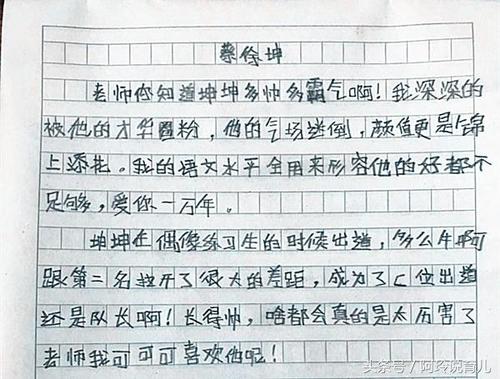 蔡徐坤
老师你知道坤坤多帅多霸气啊！我深深的
被他的才华圈粉，他的气场迷倒，颜值更是锦
上添花。我的语文水平全用来形容他的好都不
足够，爱你一万年。
坤坤在偶像练习生的时候出道，多么牛啊
跟第二名拉开了很大的差距，成为了C位出道
还是队长啊！长得帅，啥都会真的是太厉害了
老师我可可可喜欢他呢！
头条号/阿玲说育儿